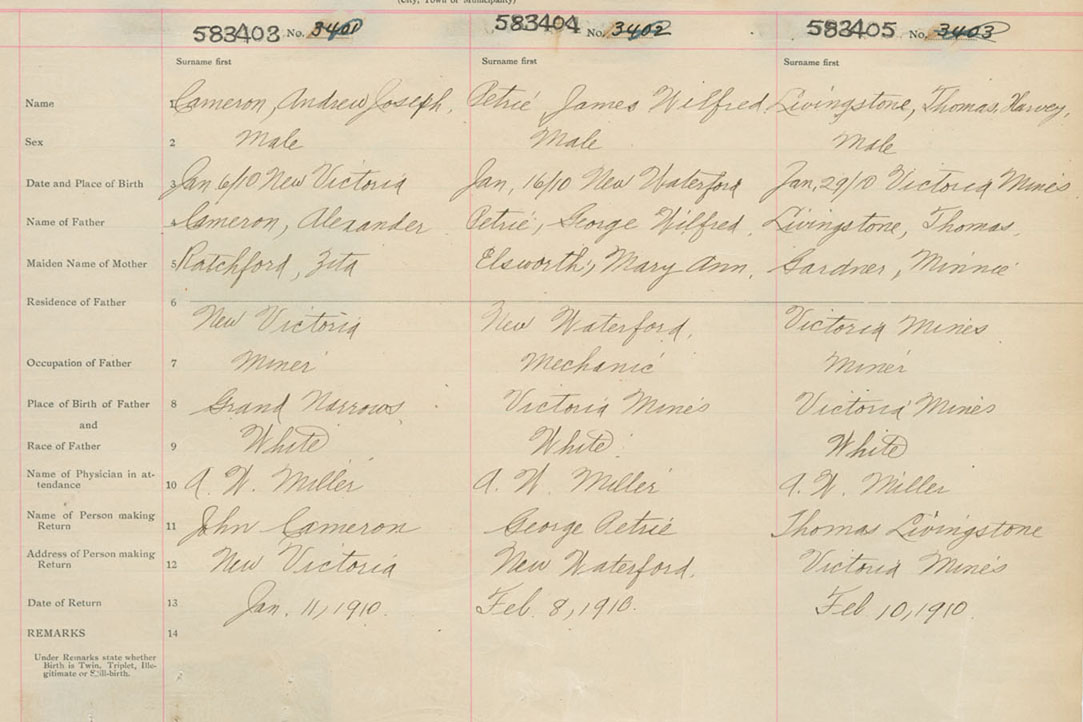 (City, Town or Municipality)
583403 No. 3401 583404 No. 3402 583405 No. 3403
Surname first Surname first Surname first
Name 1 Cameron, Andrew Joseph. Petrie James Wilfred. Livingstone, Thomas, Harvey.
Sex 2 Male Male Male
Date and Place of Birth 3 Jan 6/10 New Victoria Jan, 16/10 New Waterford Jan, 29/10 Victoria Mines
Name of Father 4 Cameron, Alexander Petrie, George Wilfred. Livingstone, Thomas.
Maiden Name of Mother 5 Ratchford, Zita Elsworth, Mary Ann. Gardner, Minnie
Residence of Father 6
New Victoria New Waterford. Victoria Mines
Occupation of Father 7 Miner Mechanic Miner
Place of Birth of Father 8 Grand Narrows Victoria Mines Victoria Mines
and
Race of Father 9 White White White
Name of Physician in at-
tendance 10 A. W. Miller A. W. Miller A. W. Miller
Name of Person making
Return 11 John Cameron George Petrie Thomas Livingstone
Address of Person making
Return 12 New Victoria New Waterford. Victoria Mines
Date of Return 13 Jan. 11, 1910. Feb. 8, 1910. Feb 10, 1910.
REMARKS 14
Under Remarks state whether
Birth is Twin, Triplet, Ille-
gitimate or Still-birth.